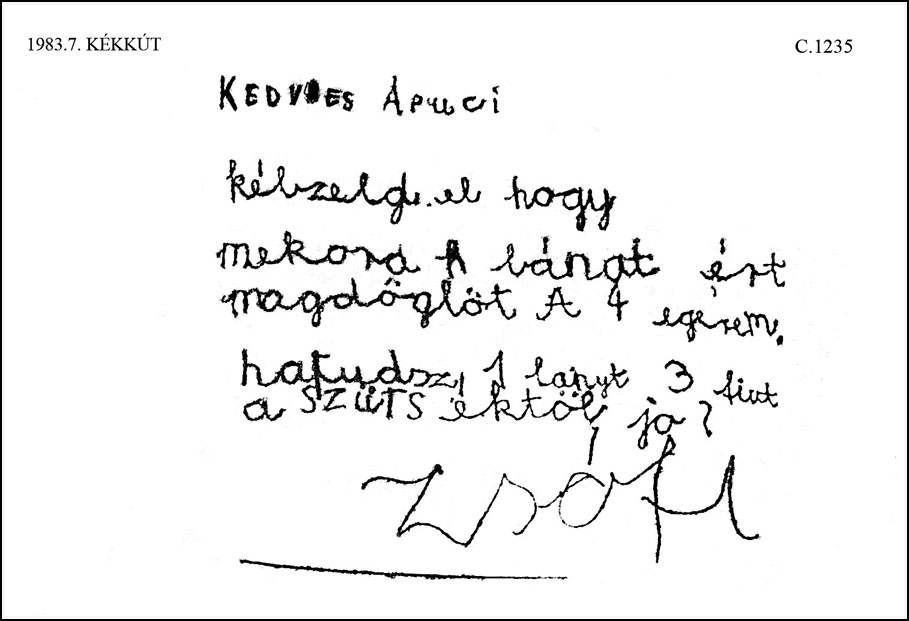 1983.7. KÉKKÚT
C.1235
KEDVES APUCI
kébzeld el hogy
mekora bánat ért
magdöglöt A 4 egérem.
hatudsz, 1 lányt 3 fiut
a SZÜTS éktöl, jó?
Zsófi